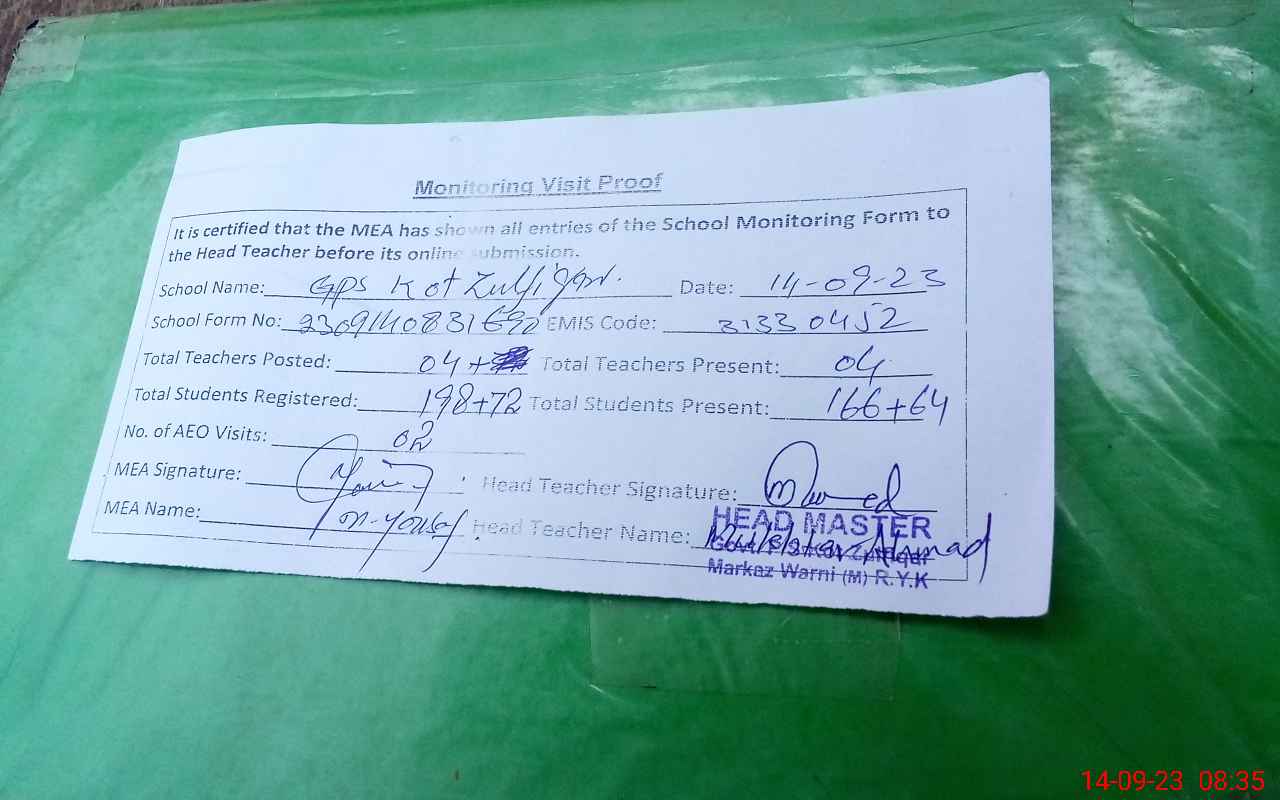 Monitoring Visit Proof
It is certified that the MEA has shown all entries of the School Monitoring Form to
the Head Teacher before its online submission.
School Name: GPS Kot Zulfiqar. Date: 14-09-23
School Form No: EMIS Code: 31330452
Total Teachers Posted: 04+ Total Teachers Present: 04
Total Students Registered: 198+72 Total Students Present: 166+64
No. of AEO Visits: 02
MEA Signature: Head Teacher Signature:
MEA Name: M-Yousaf Head Teacher Name: Ahmad
HEAD MASTER
Markaz Warni (M) R.Y.K
14-09-23 08:35